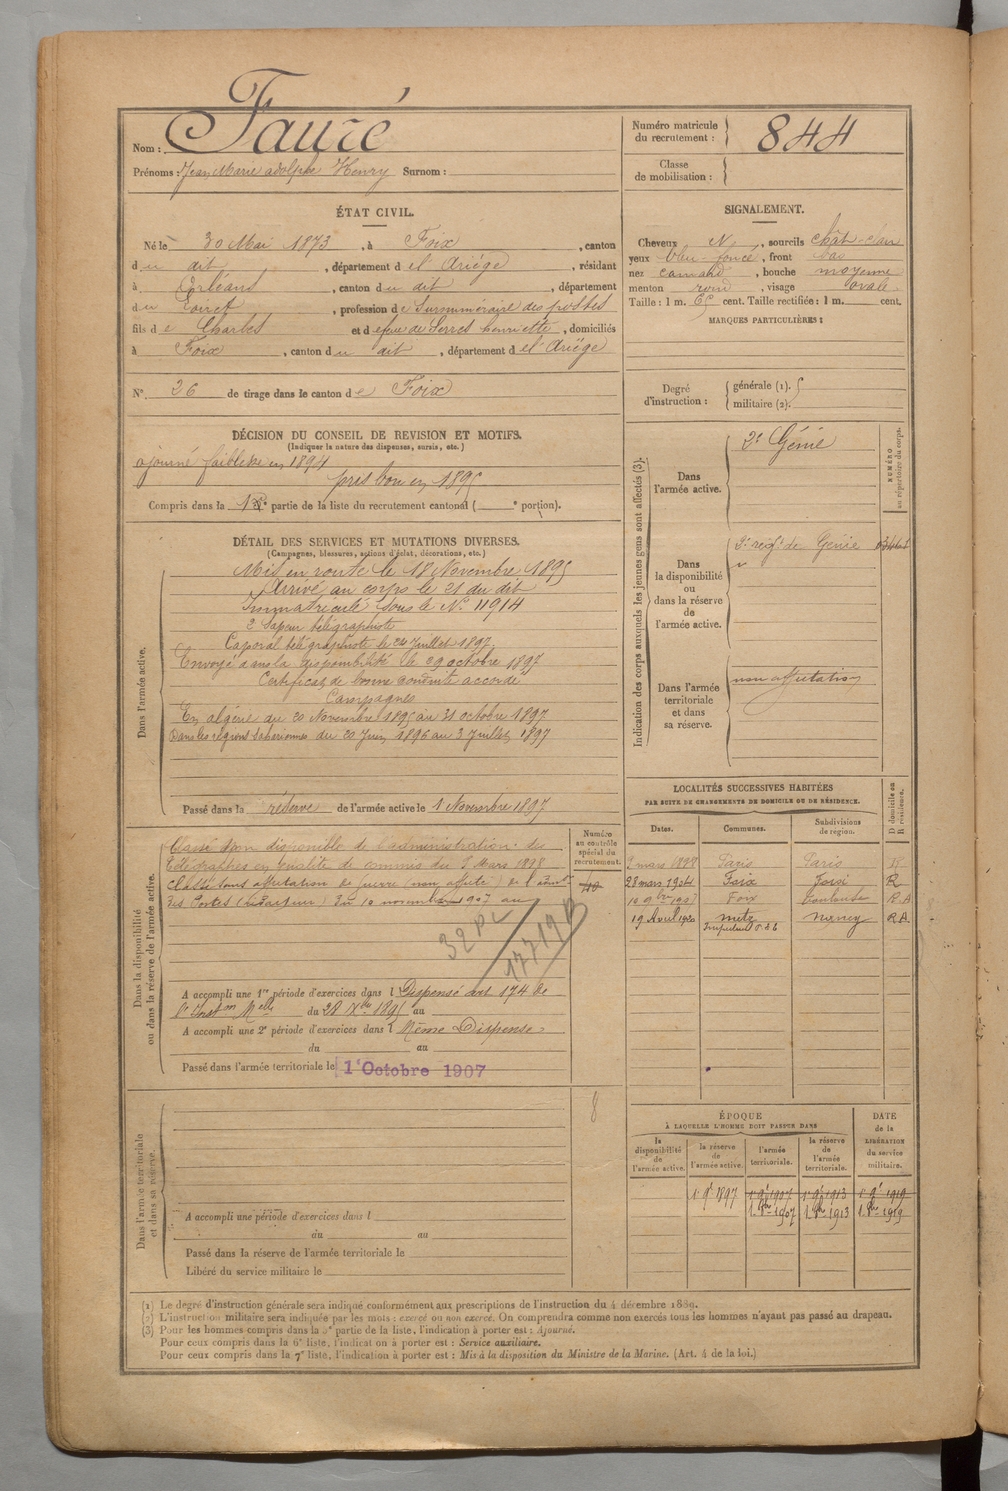 Nom : Fauré
Prénoms : Jean Marie adolphe Henry Surnom :
Numéro matricule du recrutement : 844
Classe de mobilisation :
ÉTAT CIVIL.
Né le 30 Mai 1873, à Foix, canton
du dit, département de l'Ariége, résidant
à Orléans, canton du dit, département
du Loiret, profession de Surnuméraire des postes
fils de Charles et de feue de Serres henriette, domiciliés
à Foix, canton du dit, département de l'Ariège
N° 26 de tirage dans le canton de Foix
SIGNALEMENT.
Cheveux N, sourcils chât-clair
yeux bleu-foncé, front bas
nez camard, bouche moyenne
menton rond, visage ovale
Taille : 1 m. 65 cent. Taille rectifiée : 1 m. cent.
MARQUES PARTICULIÈRES :
Degré d'instruction : générale (1).
militaire (2).
DÉCISION DU CONSEIL DE REVISION ET MOTIFS.
(Indiquer la nature des dispenses, sursis, etc.)
ajourné faiblesse en 1894
pris bon en 1895
Compris dans la 1re partie de la liste du recrutement cantonal ( e portion).
DÉTAIL DES SERVICES ET MUTATIONS DIVERSES.
(Campagnes, blessures, actions d'éclat, décorations, etc.)
Dans l'armée active.
Mis en route le 18 Novembre 1895
Arrivé au corps le 21 du dit
Immatriculé sous le N° 11914
2 Sapeur télégraphiste
Caporal télégraphiste le 24 Juillet 1897
Envoyé dans la disponibilité le 29 octobre 1897
Certificat de bonne conduite accordé
Campagnes
En algérie du 20 Novembre 1895 au 31 octobre 1897
Dans les régions Sahariennes du 20 Juin 1896 au 3 Juillet 1897
Passé dans la réserve de l'armée active le 1 Novembre 1897
Indication des corps auxquels les jeunes gens sont affectés (3).
NUMÉRO au répertoire du corps.
Dans l'armée active.
2e Génie
Dans la disponibilité ou dans la réserve de l'armée active.
3e regt de Génie
Dans l'armée territoriale et dans sa réserve.
non affectation
LOCALITÉS SUCCESSIVES HABITÉES
PAR SUITE DE CHANGEMENTS DE DOMICILE OU DE RÉSIDENCE.
Dates. Communes. Subdivisions de région. D domicile ou R résidence.
9 mars 1898 Paris Paris R
28 mars 1904 Foix Foix R
10 9bre 1907 Foix Toulouse R A
19 Avril 1920 Metz Nancy RA
Dans la disponibilité ou dans la réserve de l'armée active.
Numéro au contrôle spécial du recrutement.
Classé non disponible de l'administration des
Télégraphes en qualité de commis du 9 Mars 1898
Classé sans affectation de guerre (non affecté) de l'admon
des Postes (Rédacteur) du 10 novembre 1907 au
32 PL
17719 B
A accompli une 1re période d'exercices dans l Dispensé art 174 de
l'Inston Melle du 28 Xbre 1895 au
A accompli une 2e période d'exercices dans l Même Dispense
du au
Passé dans l'armée territoriale le 1er Octobre 1907
8
ÉPOQUE
À LAQUELLE L'HOMME DOIT PASSER DANS
la disponibilité de l'armée active. la réserve de l'armée active. l'armée territoriale. la réserve de l'armée territoriale.
DATE de la LIBÉRATION du service militaire.
1r 9r 1897 1r 9r 1907 1r 9r 1913 1r 9r 1919
1. 8bre 1907 1. 8bre 1913 1. 8bre 1919
Dans l'armée territoriale et dans sa réserve.
A accompli une période d'exercices dans l
du au
Passé dans la réserve de l'armée territoriale le
Libéré du service militaire le
(1) Le degré d'instruction générale sera indiqué conformément aux prescriptions de l'instruction du 4 décembre 1889.
(2) L'instruction militaire sera indiquée par les mots : exercé ou non exercé. On comprendra comme non exercés tous les hommes n'ayant pas passé au drapeau.
(3) Pour les hommes compris dans la 5e partie de la liste, l'indication à porter est : Ajourné.
Pour ceux compris dans la 6e liste, l'indication à porter est : Service auxiliaire.
Pour ceux compris dans la 7e liste, l'indication à porter est : Mis à la disposition du Ministre de la Marine. (Art. 4 de la loi.)